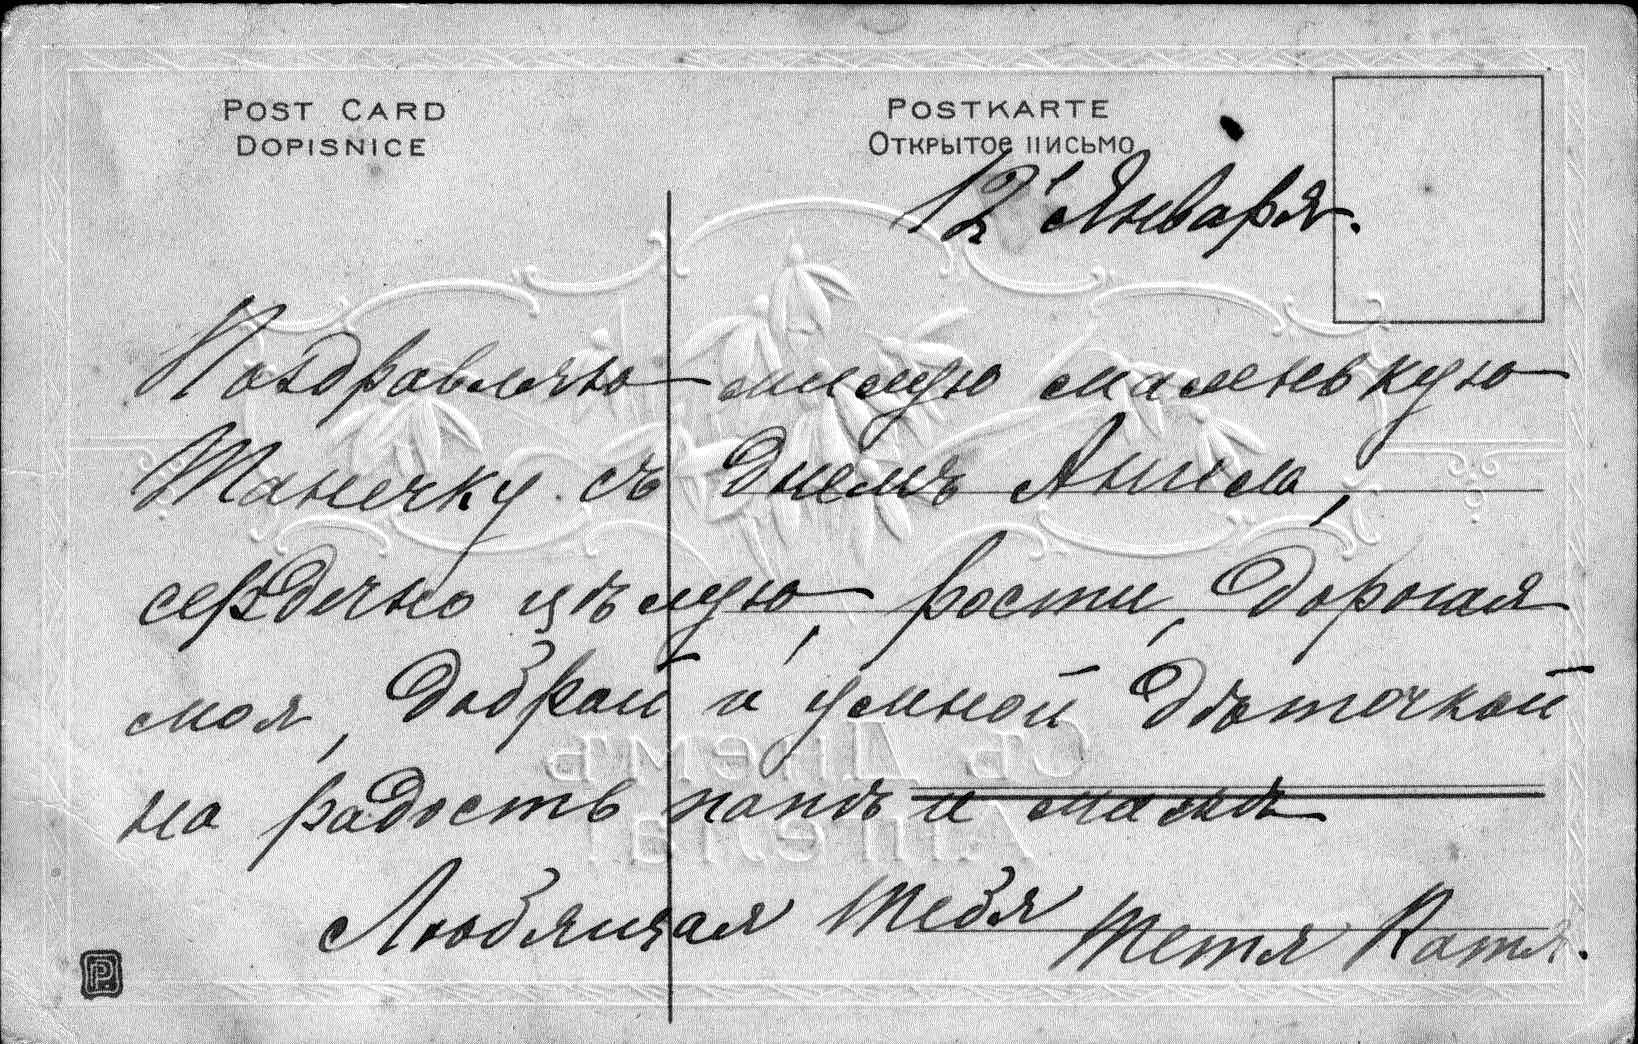 POST CARD
DOPISNICE
POSTKARTE
Открытое письмо
12 Января.
Поздравляю милую маленькую
Танечку съ Днемъ Ангела,
сердечно цѣлую, рости, дорогая
моя, доброй и умной дѣточкой
на радость папѣ и мамѣ
Любящая тебя тетя Катя.
Съ Днемъ
Ангела!
P